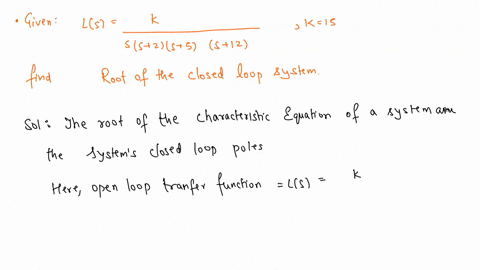 • Given: L(s) = k / s(s+2)(s+5) (s+12) , K=15
find Root of the closed loop system.
Sol: The root of the characteristic Equation of a system are
the system's closed loop poles
Here, open loop tranfer function = L(s) = k